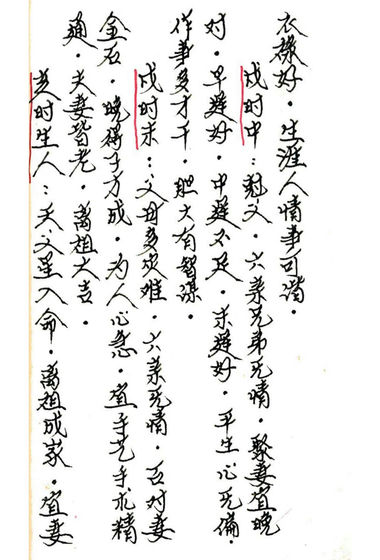 衣禄好。生涯人情事可谐。
戌时中：尅父。六亲兄弟无情。聚妻宜晚
对。早运好。中运不足。末运好。平生心无偏。
作事多才干。胆大有智谋。
戌时末：父母多灾难。六亲无情。对妻
金石。晚得子方成。为人心急。宜手艺手术精
通。夫妻皆老。离祖大吉。
亥时生人：天文星入命。离祖成家。宜妻